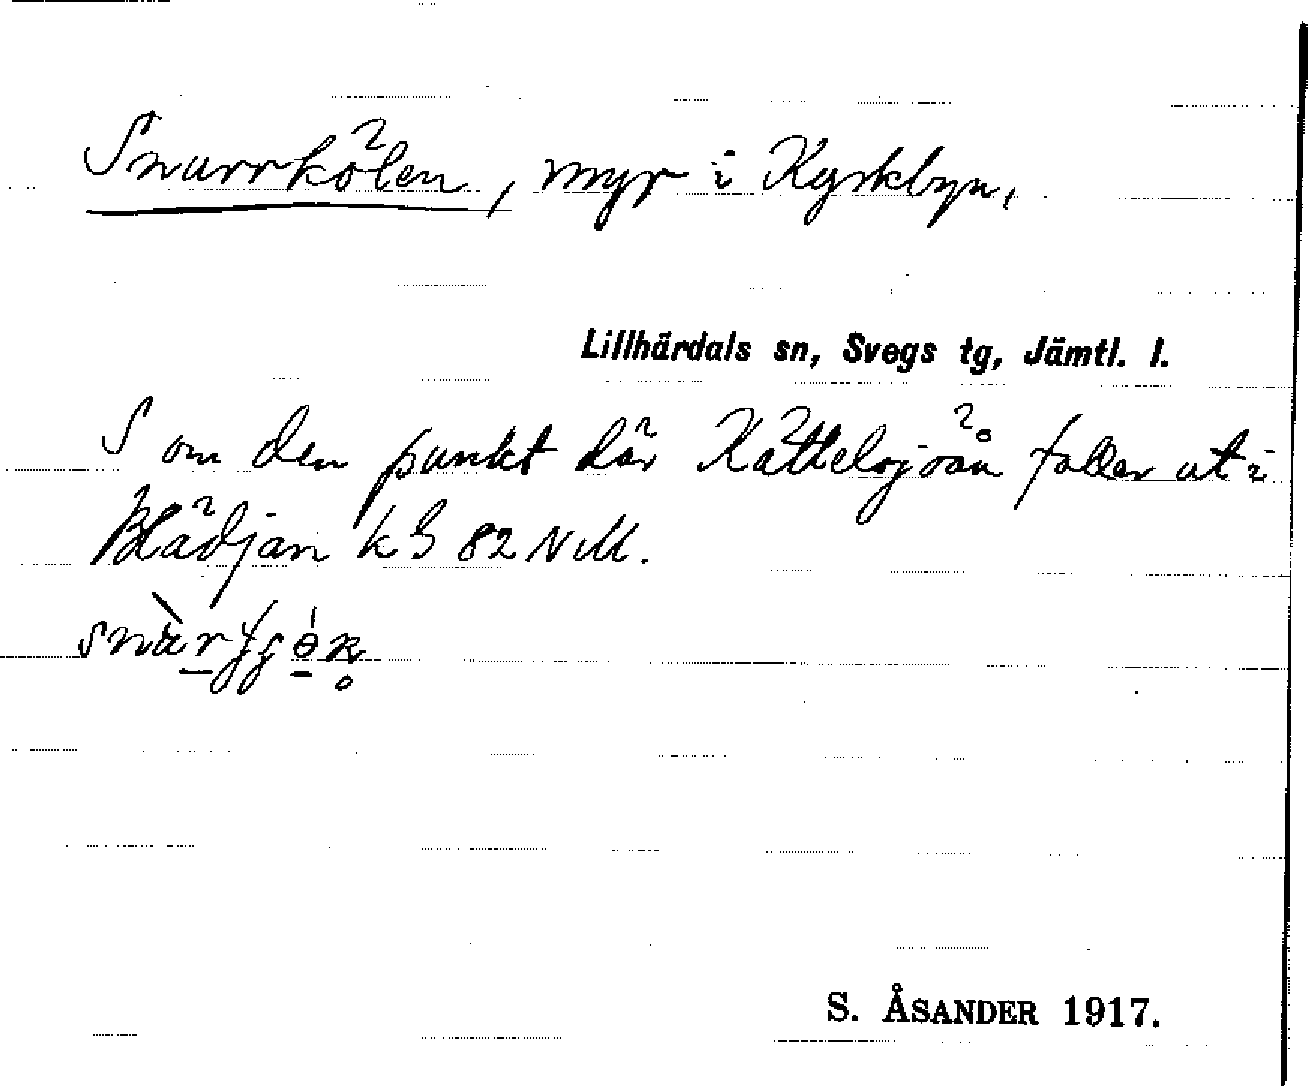 Snurrkölen, myr i Kyrkbyn,
Lillhärdals sn, Svegs tg, Jämtl. l.
S om den punkt där faller ut i
Blädjan k 82 NM.
S. ÅSANDER 1917.